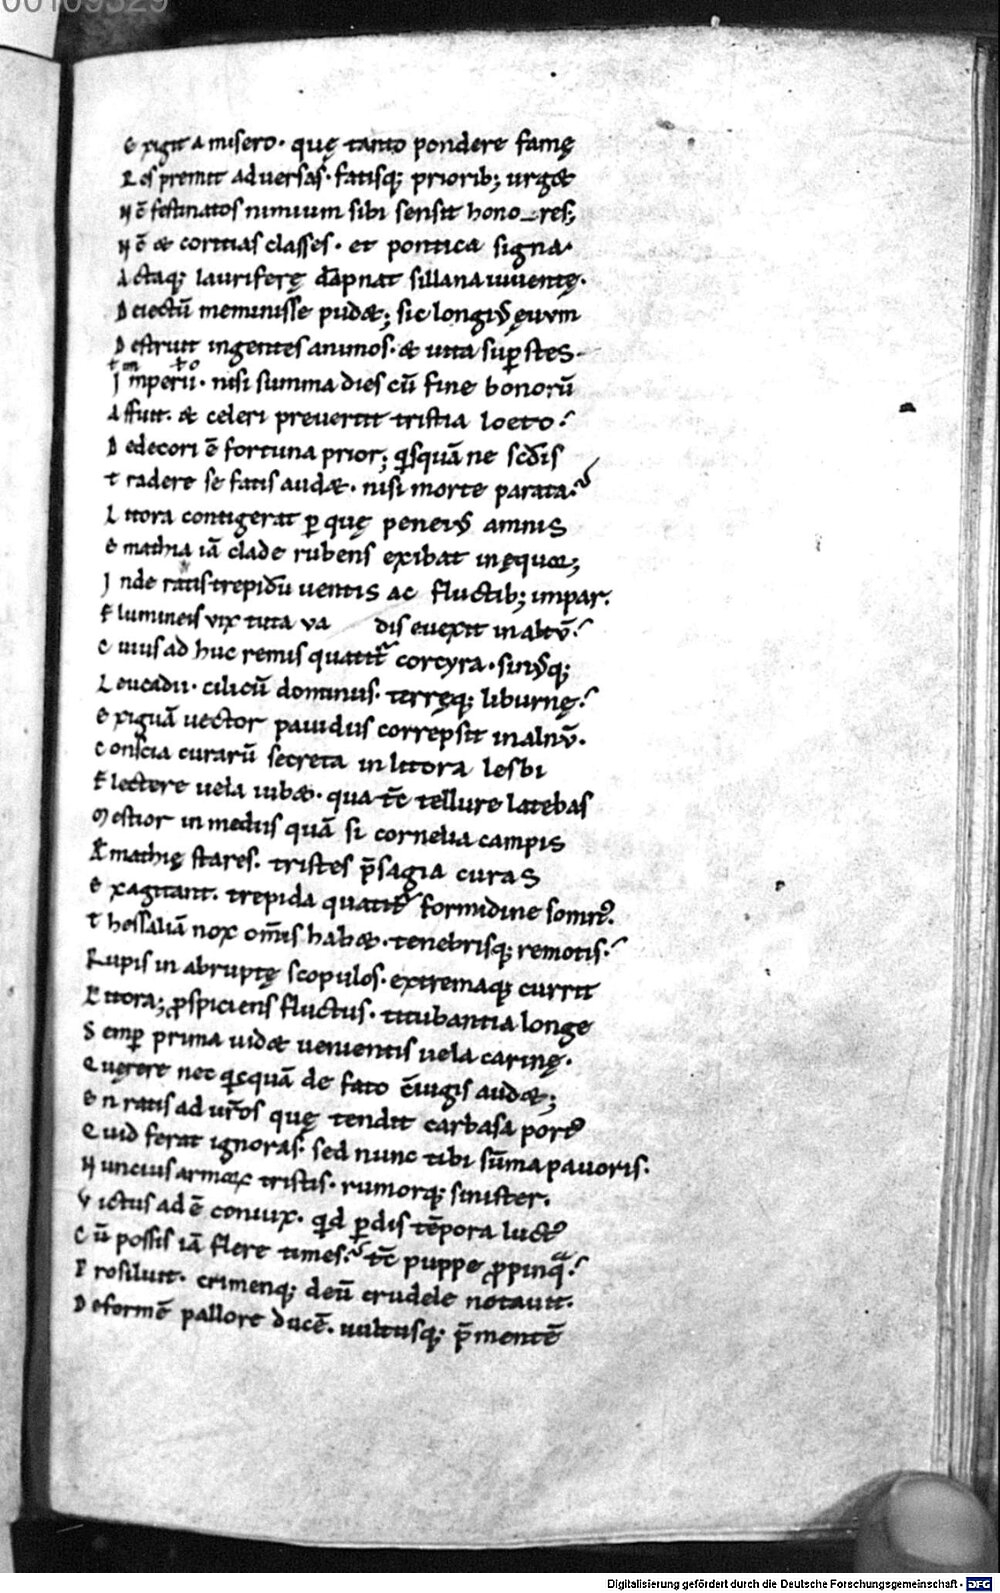 00109329
e xigit a misero· quę tanto pondere famę
R es premit aduersas· fatisq; priorib; urgæt
N ē festinatos nimium sibi sensit hono_res;
N ē æt coritias classes· et pontica signa·
A ctaq; lauriferę dāpnat sillana iuuentę·
D eiectū meminisse pudæt; sic longiꝰ ęuum
D estruit ingentes animos· æt uita suꝑstes·
I mperii· nisi summa dies cū fine bonorū
A ffuit· æt celeri preuertit tristia loeto·
D edecori ē fortuna prior; qisquā ne scd̄is
t radere se fatis audæt· nisi morte parata·
L ittora contigerat ꝑ quę peneiꝰ amnis
e mathia iā clade rubens exibat inęquor;
I nde ratis trepidū uentis ac fluctib; impar·
F lumineis vix tuta va dis euexit in altū·
C uius ad huc remis quatit͛ corcyra· sinꝰq;
L eucadii· cilicū dominus· terręq; liburnę·
e xiguā uector pauidus correpsit in alnū·
C onscia curarū secreta in littora lesbi
F lectere uela iubæt· qua tc̄ tellure latebas
M estior in mediis quā si cornelia campis
E mathię stares· tristes p̄sagia curas
e xagitant· trepida quatit͛ formidine somnꝰ·
t hessaliā nox om̄is habæt· tenebrisq; remotis·
R upis in abruptę scopulos· extremaq; currit
L ittora; ꝓspiciens fluctus· titubantia longe
S emꝑ prima uidæt uenientis uela carinę·
Q uęrere nec qicquā de fato c̄iugis audæt;
e n̄ ratis ad ur̄os quę tendit carbasa portꝰ
Q uid ferat ignoras· sed nunc tibi sūma pauoris·
N uncius armoꝝ tristis· rumorq; sinister·
V ictus adē coniux· qid ꝑdis tēpora luctꝰ
C ū possis iā flere times· tc̄ puppe ꝓpinqa·
P rosiluit· crimenq; deū crudele notauit·
D eformē pallore ducē· uultusq; p̄mentē
Digitalisierung gefördert durch die Deutsche Forschungsgemeinschaft - DFG